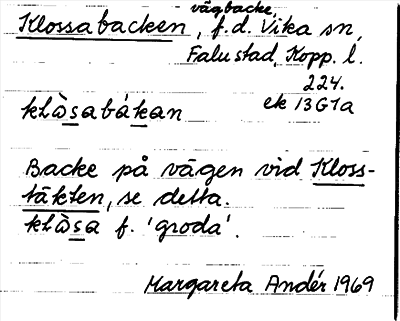 vägbacke
Klossabacken, f.d. Vika sn,
Falu stad, Kopp. l.
224.
ek 13G1a
klɷ̀sabákan
Backe på vägen vid Kloss-
täkten, se detta.
klɷ̀sa f. 'groda'.
Margareta Andér 1969